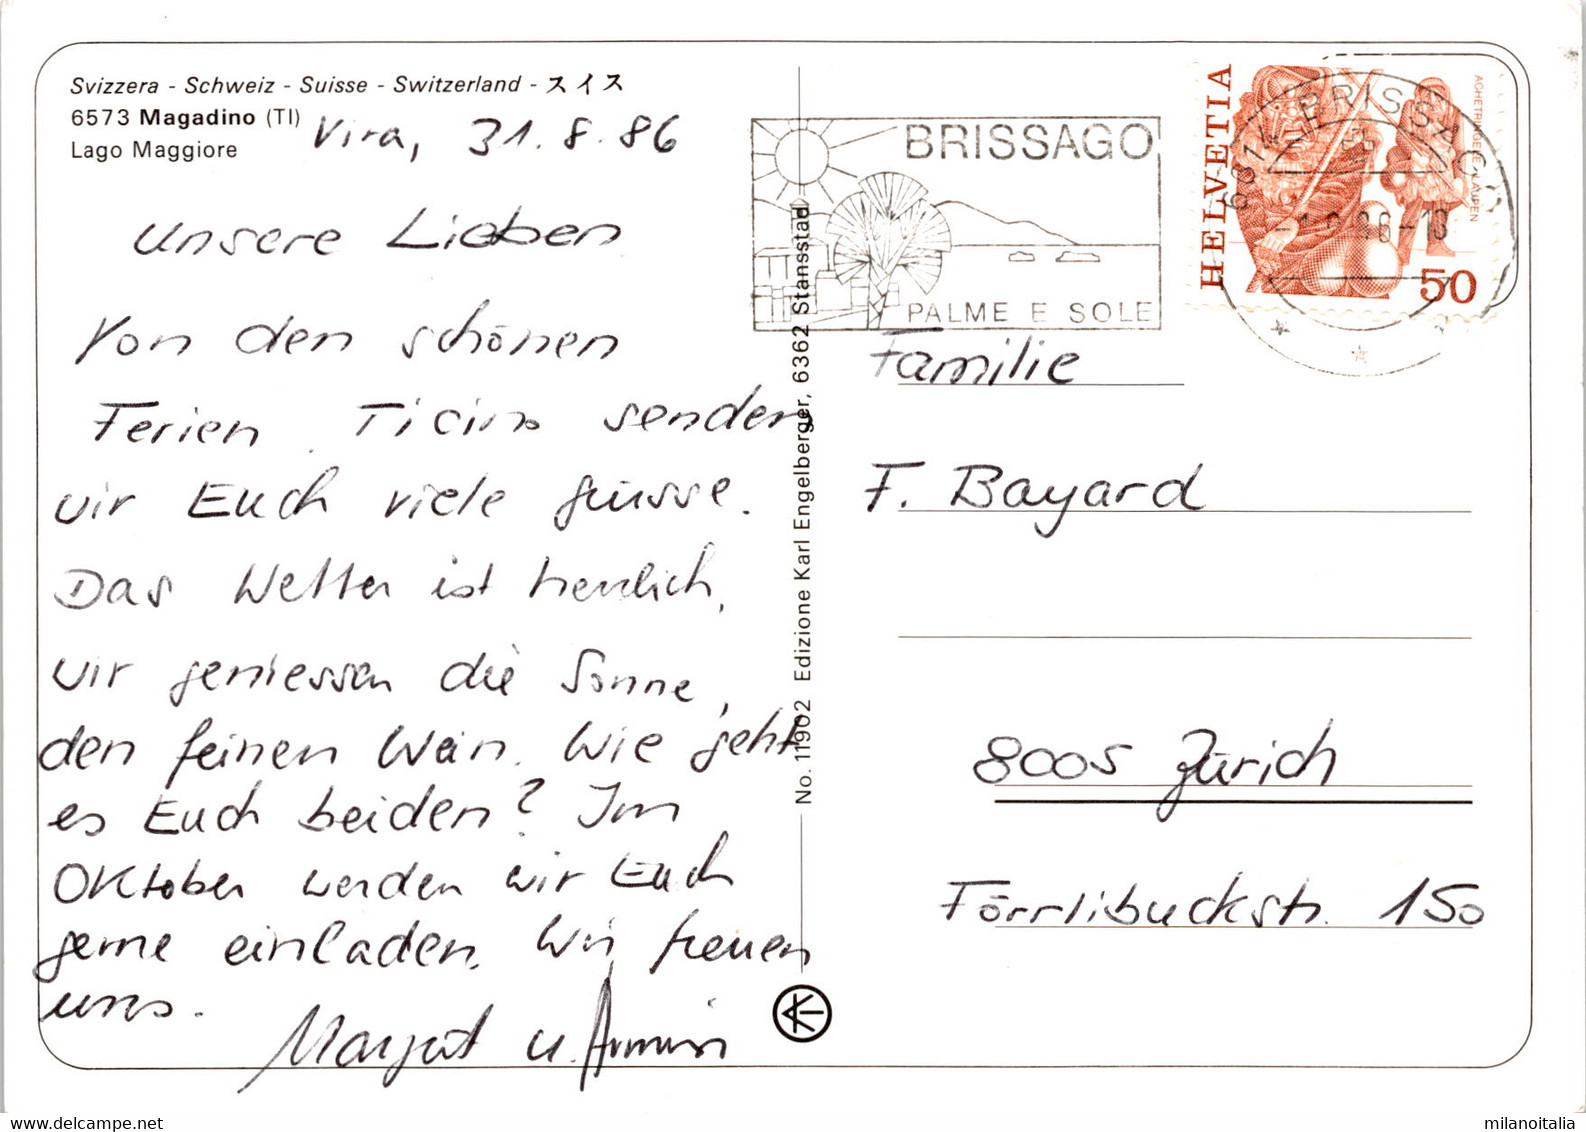 Svizzera - Schweiz - Suisse - Switzerland - スイス
6573 Magadino (TI)
Lago Maggiore
Vira, 31.8.86
Unsere Lieben
Von den schönen
Ferien Ticino senden
wir Euch viele grüsse.
Das Wetter ist herrlich,
wir geniessen die Sonne,
den feinen Wein. Wie geht
es Euch beiden? Im
Oktober werden wir Euch
gerne einladen. Wir freuen
uns.
Margrit u. Armin
No. 11902 Edizione Karl Engelberger, 6362 Stansstad
BRISSAGO
PALME E SOLE
6614 BRISSAGO
HELVETIA
ACHETRINGELE LAUPEN
50
Familie
F. Bayard
8005 Zürich
Förrlibuckstr. 150
milanoitalia
www.delcampe.net